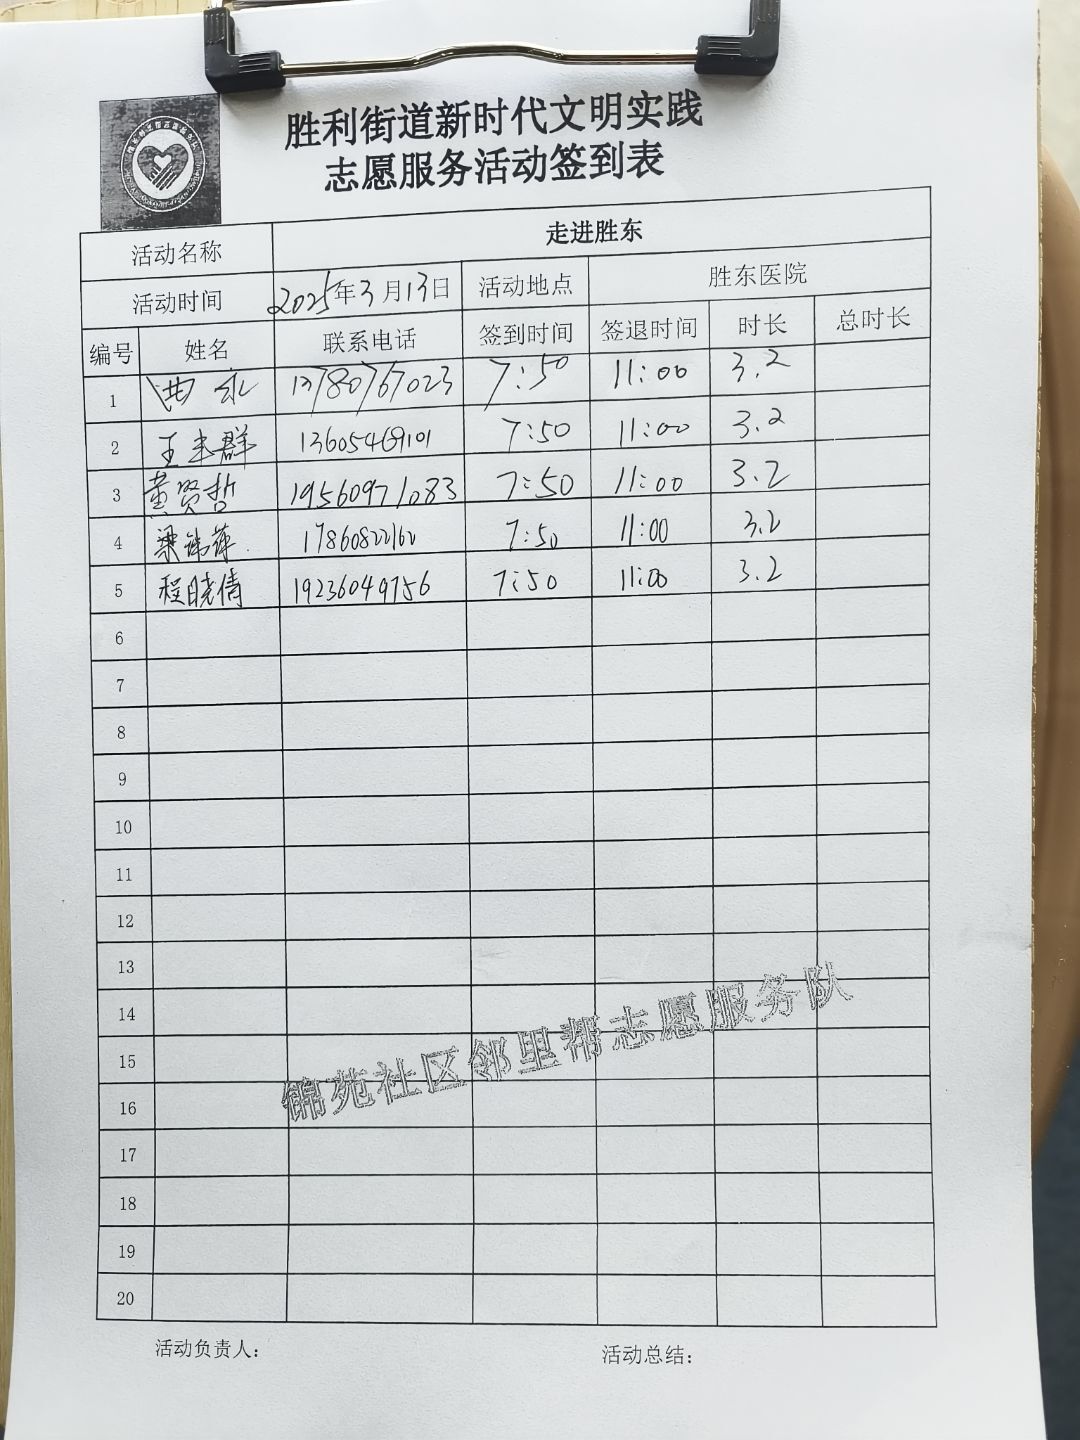 胜利街道新时代文明实践
志愿服务活动签到表
活动名称 走进胜东
活动时间 2025年3月13日 活动地点 胜东医院
编号 姓名 联系电话 签到时间 签退时间 时长 总时长
1 13780767023 7:50 11:00 3.2
2 王丰群 13605469101 7:50 11:00 3.2
3 黄贤哲 19560971083 7:50 11:00 3.2
4 17860822162 7:50 11:00 3.2
5 程晓倩 19236049756 7:50 11:00 3.2
6
7
8
9
10
11
12
13
14
15
16
17
18
19
20
锦苑社区邻里帮志愿服务队
活动负责人： 活动总结：